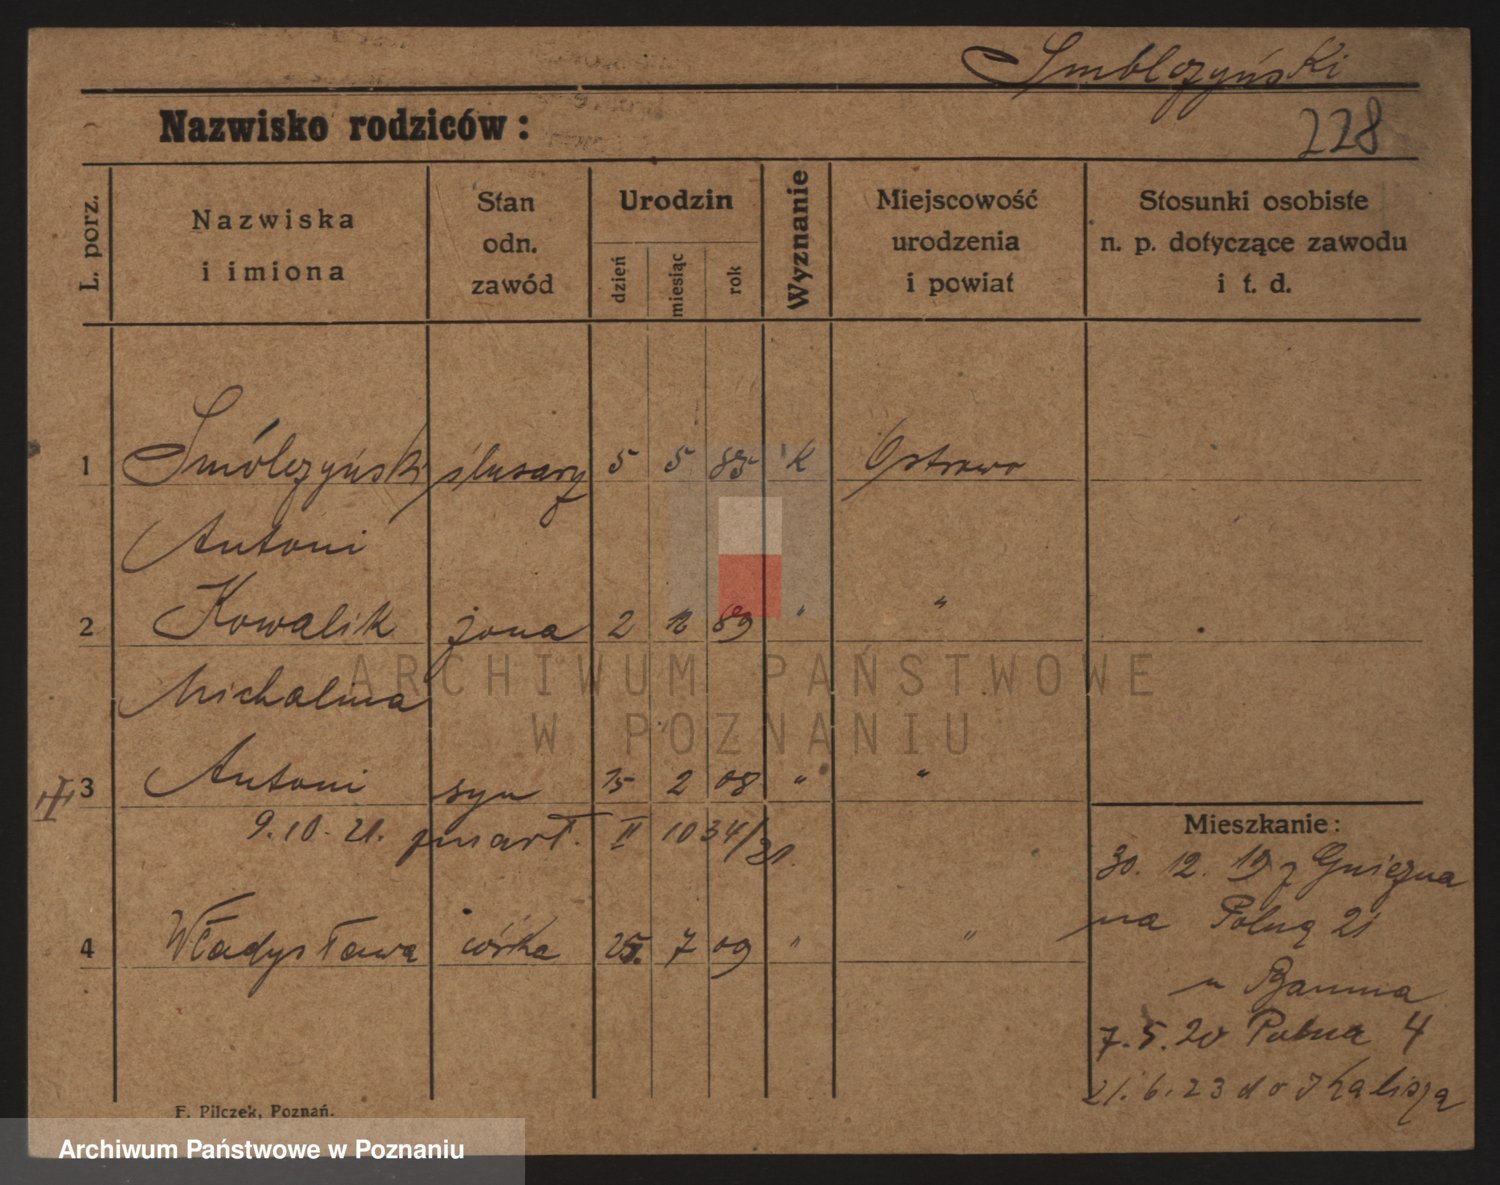 Smólczyński
Nazwisko rodziców:
228
L. porz.
Nazwiska
i imiona
Stan
odn.
zawód
Urodzin
dzień
miesiąc
rok
Wyznanie
Miejscowość
urodzenia
i powiat
Stosunki osobiste
n. p. dotyczące zawodu
i t. d.
1 Smólczyński ślusarz 5 5 85 K Ostrowo
Antoni
2 Kowalik żona 2 12 89 " "
Michalina
3 Antoni syn 15 2 08 " "
9.10.21. zmarł. II 1034/21.
4 Władysława córka 25. 7 09 " "
Mieszkanie:
30. 12. 19 z Gniezna
na Polną 21
u Bauma
7.5.20 Polna 4
21.6.23 do Kalisza
F. Pilczek, Poznań.
ARCHIWUM PAŃSTWOWE
W POZNANIU
Archiwum Państwowe w Poznaniu